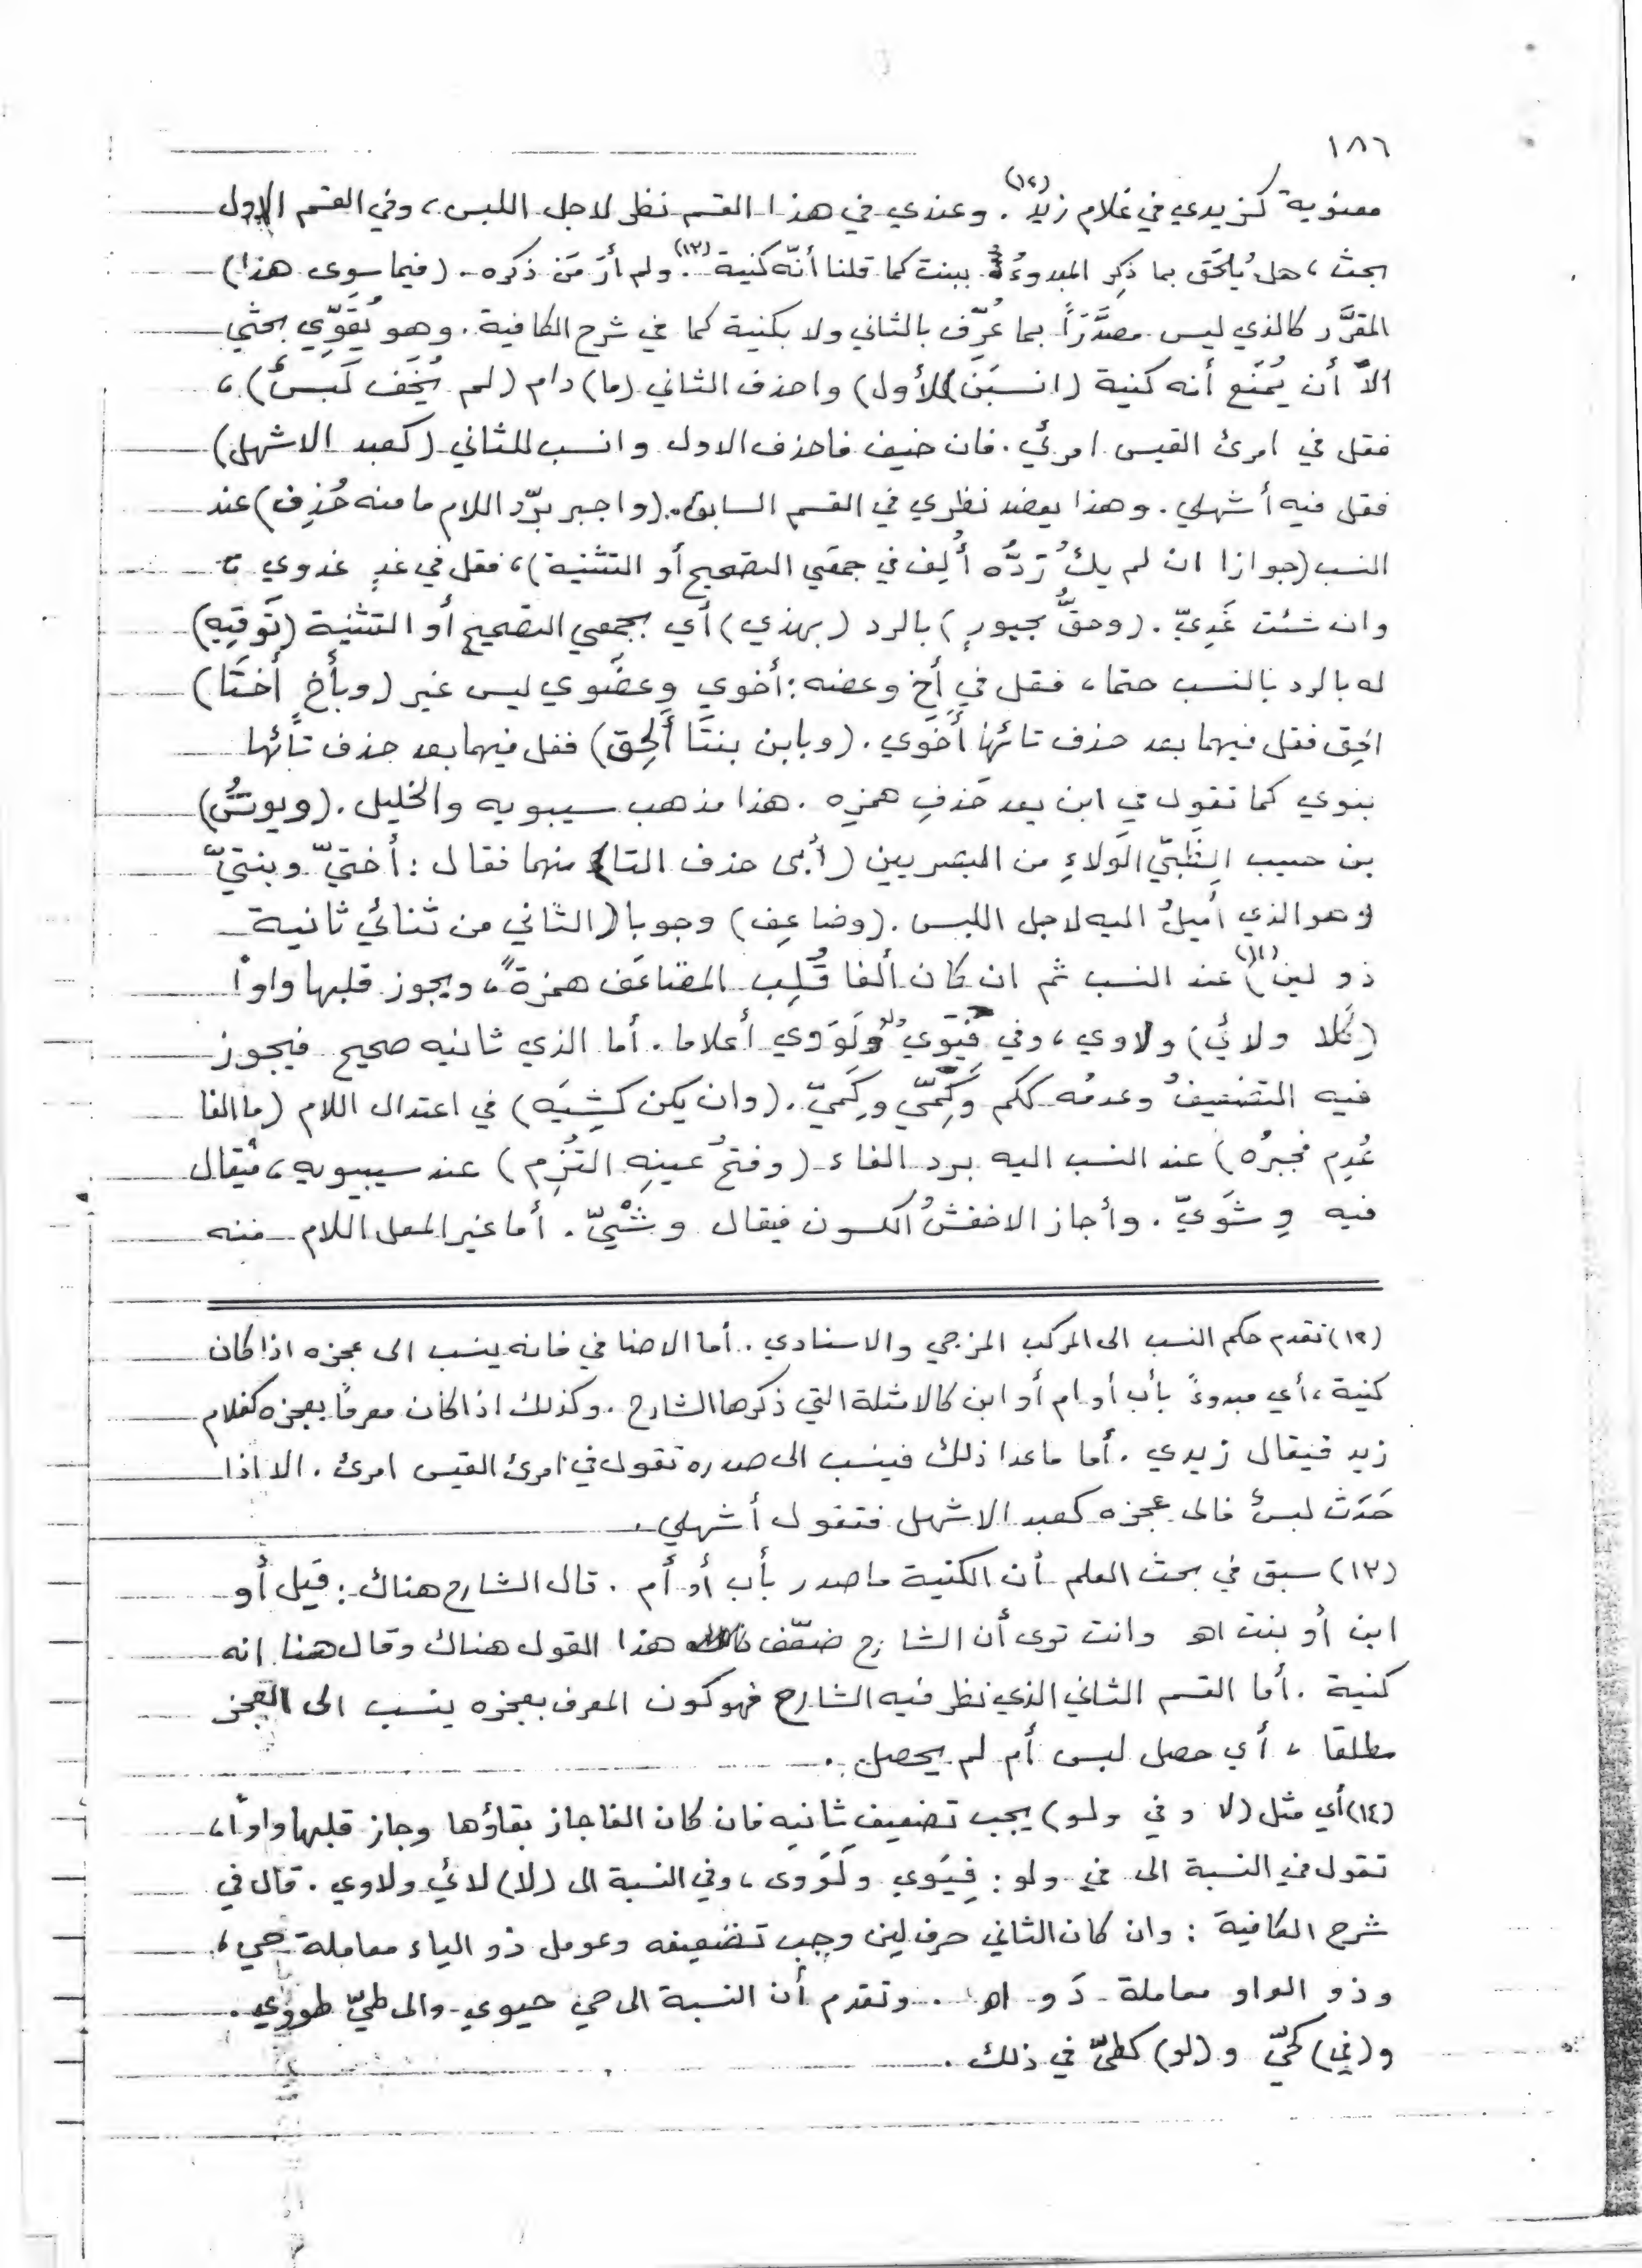 ١٨٦
معنوية كزيدي في غلام زيد(١٢). وعندي في هذا القسم نظر لاجل اللبس، وفي القسم الاول
بحث، هل يُلحَق بما ذكِر المبدوءُ ببنت كما قلنا أنّه كنية(١٣). ولم أرَ مَن ذكره. (فيما سوى هذا)
المقرَّر كالذي ليس مصدَّرَاً بما عُرِّف بالثاني ولا بكنية كما في شرح الكافية. وهو يُقَوِّي بحثي
الاّ أن يُمنَع أنه كنية (انسبَن للأول) واحذف الثاني (ما) دام (لم يُخَف لَبسٌ)،
فقل في امرئ القيس امرئي. فان خيف فاحذف الاول وانسب للثاني (كعبد الاشهل)
فقل فيه أشهلي. وهذا يعضد نظري في القسم السابق. (واجبر برّد اللام ما منه حُذِف) عند
النسب (جوازا ان لم يكُ رَدُّه أُلِف في جمعَي التصحيح أو التثنية)، فقل في غدٍ غدوي
وان شئت غَدِيّ. (وحقُّ مجبورٍ) بالرد (بهذي) أي بجمعي التصحيح أو التثنية (تَوفِيَه)
له بالرد بالنسب حتما، فقل في أخ وعضه: أخوي وعضَوي ليس غير (وبأخٍ أختَا)
الحِق فقل فيهما بعد حذف تائها أَخَوي. (وبابن بنتَا أَلحِق) فقل فيهما بعد حذف تائها
بنوي كما تقول في ابن بعد حَذفِ همزه. هذا مذهب سيبويه والخليل. (ويونسُ)
بن حبيب الضَّبّي الوَلاءِ من البصريين (أبى حذف التا) منهما فقال: أختيّ وبنتيّ
وهو الذي أميلُ اليه لاجل اللبس. (وضاعِف) وجوبا (الثاني من ثنائي ثانية
ذو لين)(١٤) عند النسب ثم ان كان ألفا قُلِب المضاعَف همزةً، ويجوز قلبها واواً
(كَلا ولائي) ولاوي، وفي فِيَوي ولَوَوي أعلاما. أما الذي ثانيه صحيح فيجوز
فيه التضعيفُ وعدمُه ككم وكَمِّيّ وكَمِيّ. (وان يكن كشِيَه) في اعتلال اللام (ما الفا
عُدِم فجبرُه) عند النسب اليه برد الفاء (وفتحُ عينِهِ التُزِم) عند سيبويه، فيُقال
فيه وِشَوِيّ. وأجاز الاخفشُ السكون فيقال وشْيِيّ. أما غير المعل اللام منه
(١٢) تقدم حكم النسب الى المركب المزجي والاسنادي. أما الاضافي فانه ينسب الى عجزه اذا كان
كنية، أي مبدوءً بأب أو ام أو ابن كالامثلة التي ذكرها الشارح. وكذلك اذا كان معرفاً بعجزه كغلام
زيد فيقال زيدي. أما ماعدا ذلك فينسب الى صدره تقول في امرئ القيس امرئ. الا اذا
حَدَثَ لبسٌ فالى عجزه كعبد الاشهل فتقول أشهلي.
(١٣) سبق في بحث العلم أن الكنية ما صدر بأب أو أم. قال الشارح هناك: قيل أو
ابن أو بنت اهـ وانت ترى أن الشارح ضعّف هذا القول هناك وقال هنا انه
كنية. أما القسم الثاني الذي نظر فيه الشارح فهو كون المعرف بعجزه ينسب الى العجز
مطلقا، أي حصل لبس أم لم يحصل.
(١٤) أي مثل (لا وفي ولو) يجب تضعيف ثانيه فان كان الفا جاز بقاؤها وجاز قلبها واواً،
تقول في النسبة الى في ولو: فِيَوي ولَوَوى، وفي النسبة الى (لا) لائي ولاوي. قال في
شرح الكافية: وان كان الثاني حرف لين وجب تضعيفه وعومل ذو الياء معاملة حي،
وذو الواو معاملة دَو اهـ. وتقدم أن النسبة الى حي حيوي والى طيّ طووي.
و(في) كحيّ و(لو) كطيّ في ذلك.